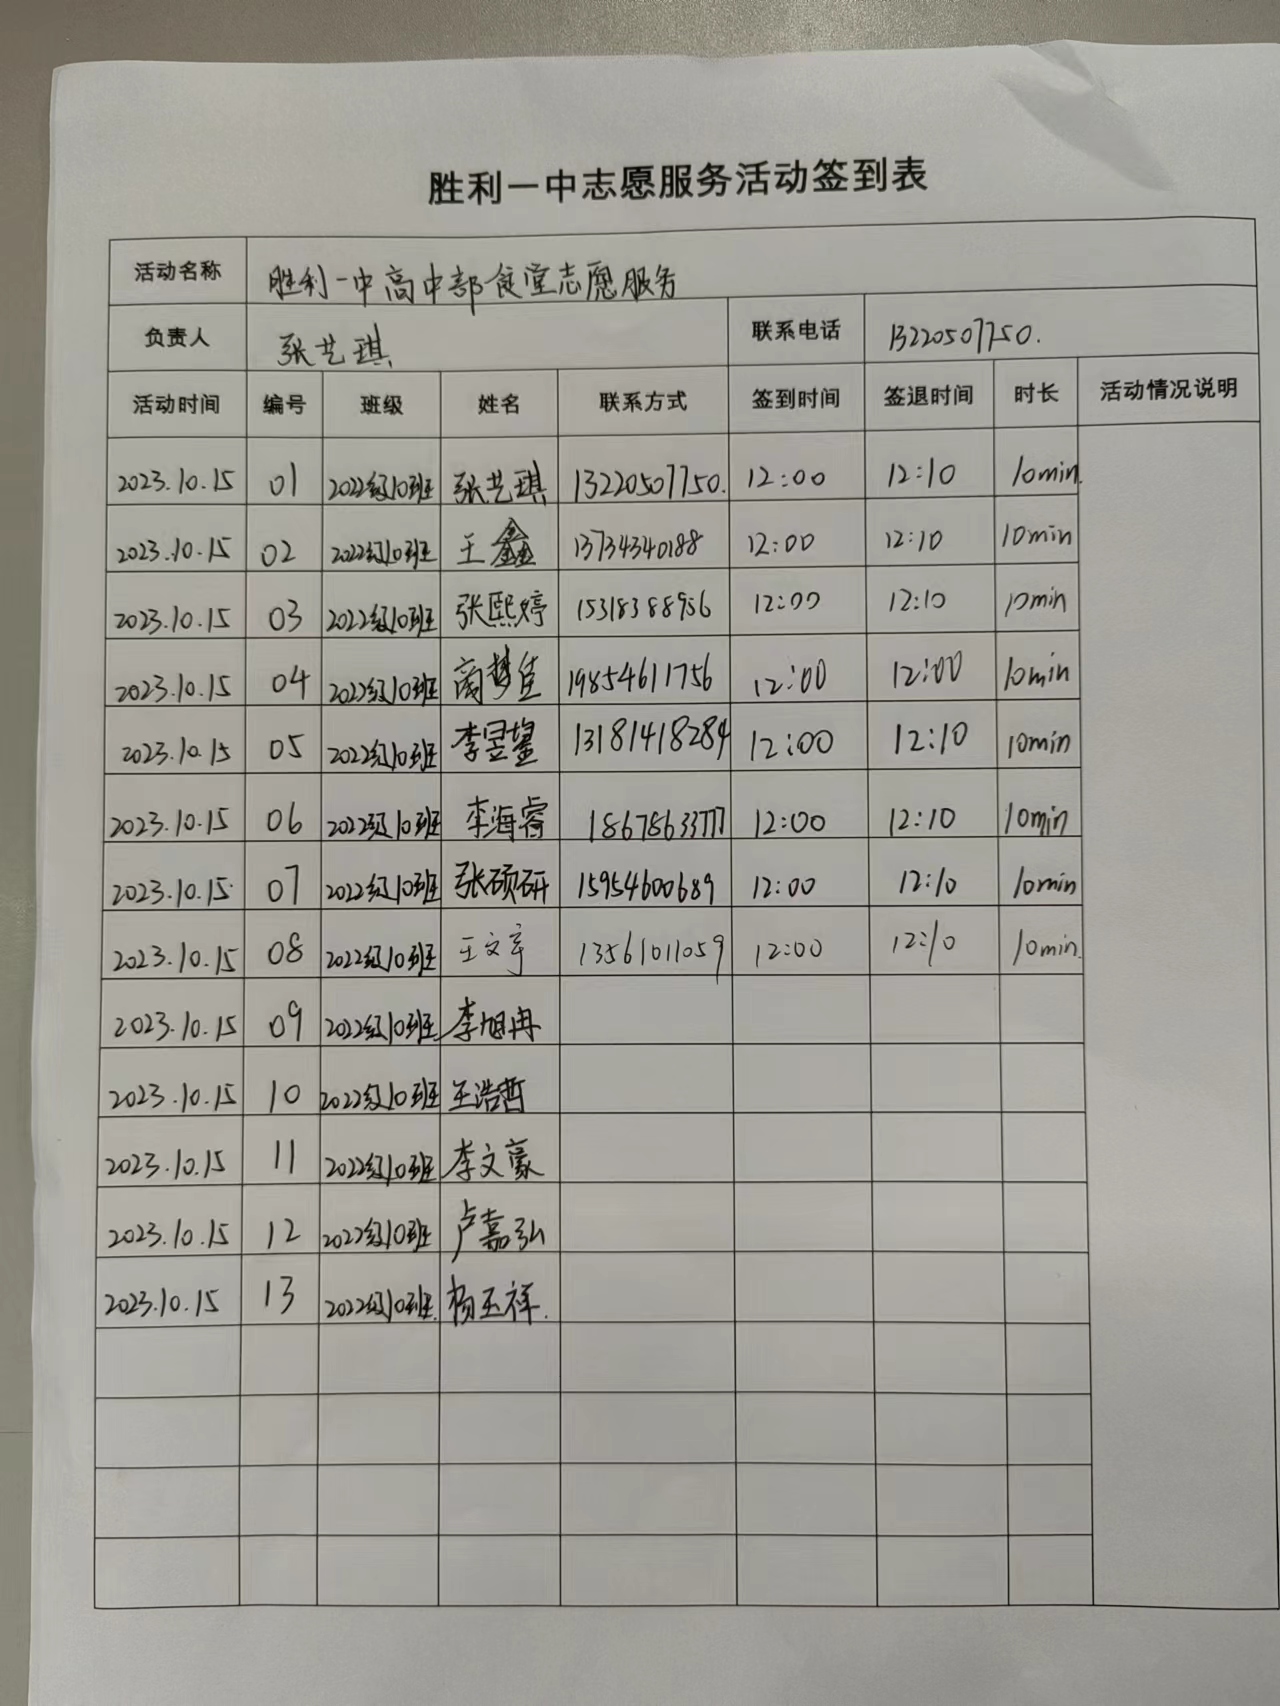 胜利一中志愿服务活动签到表
活动名称 胜利一中高中部食堂志愿服务
负责人 张艺琪 联系电话 13220507750.
活动时间 编号 班级 姓名 联系方式 签到时间 签退时间 时长 活动情况说明
2023.10.15 01 2022级10班 张艺琪 13220507750. 12:00 12:10 10min.
2023.10.15 02 2022级10班 王鑫 13734340188 12:00 12:10 10min
2023.10.15 03 2022级10班 张熙婷 15318388956 12:00 12:10 10min
2023.10.15 04 2022级10班 商梦佳 19854611756 12:00 12:00 10min
2023.10.15 05 2022级10班 李昱鋆 13181418284 12:00 12:10 10min
2023.10.15 06 2022级10班 李海睿 18678633777 12:00 12:10 10min
2023.10.15 07 2022级10班 张硕研 15954600689 12:00 12:10 10min
2023.10.15 08 2022级10班 王文宇 13561011059 12:00 12:10 10min.
2023.10.15 09 2022级10班 李旭冉
2023.10.15 10 2022级10班 王浩哲
2023.10.15 11 2022级10班 李文豪
2023.10.15 12 2022级10班 卢嘉弘
2023.10.15 13 2022级10班. 杨玉祥.